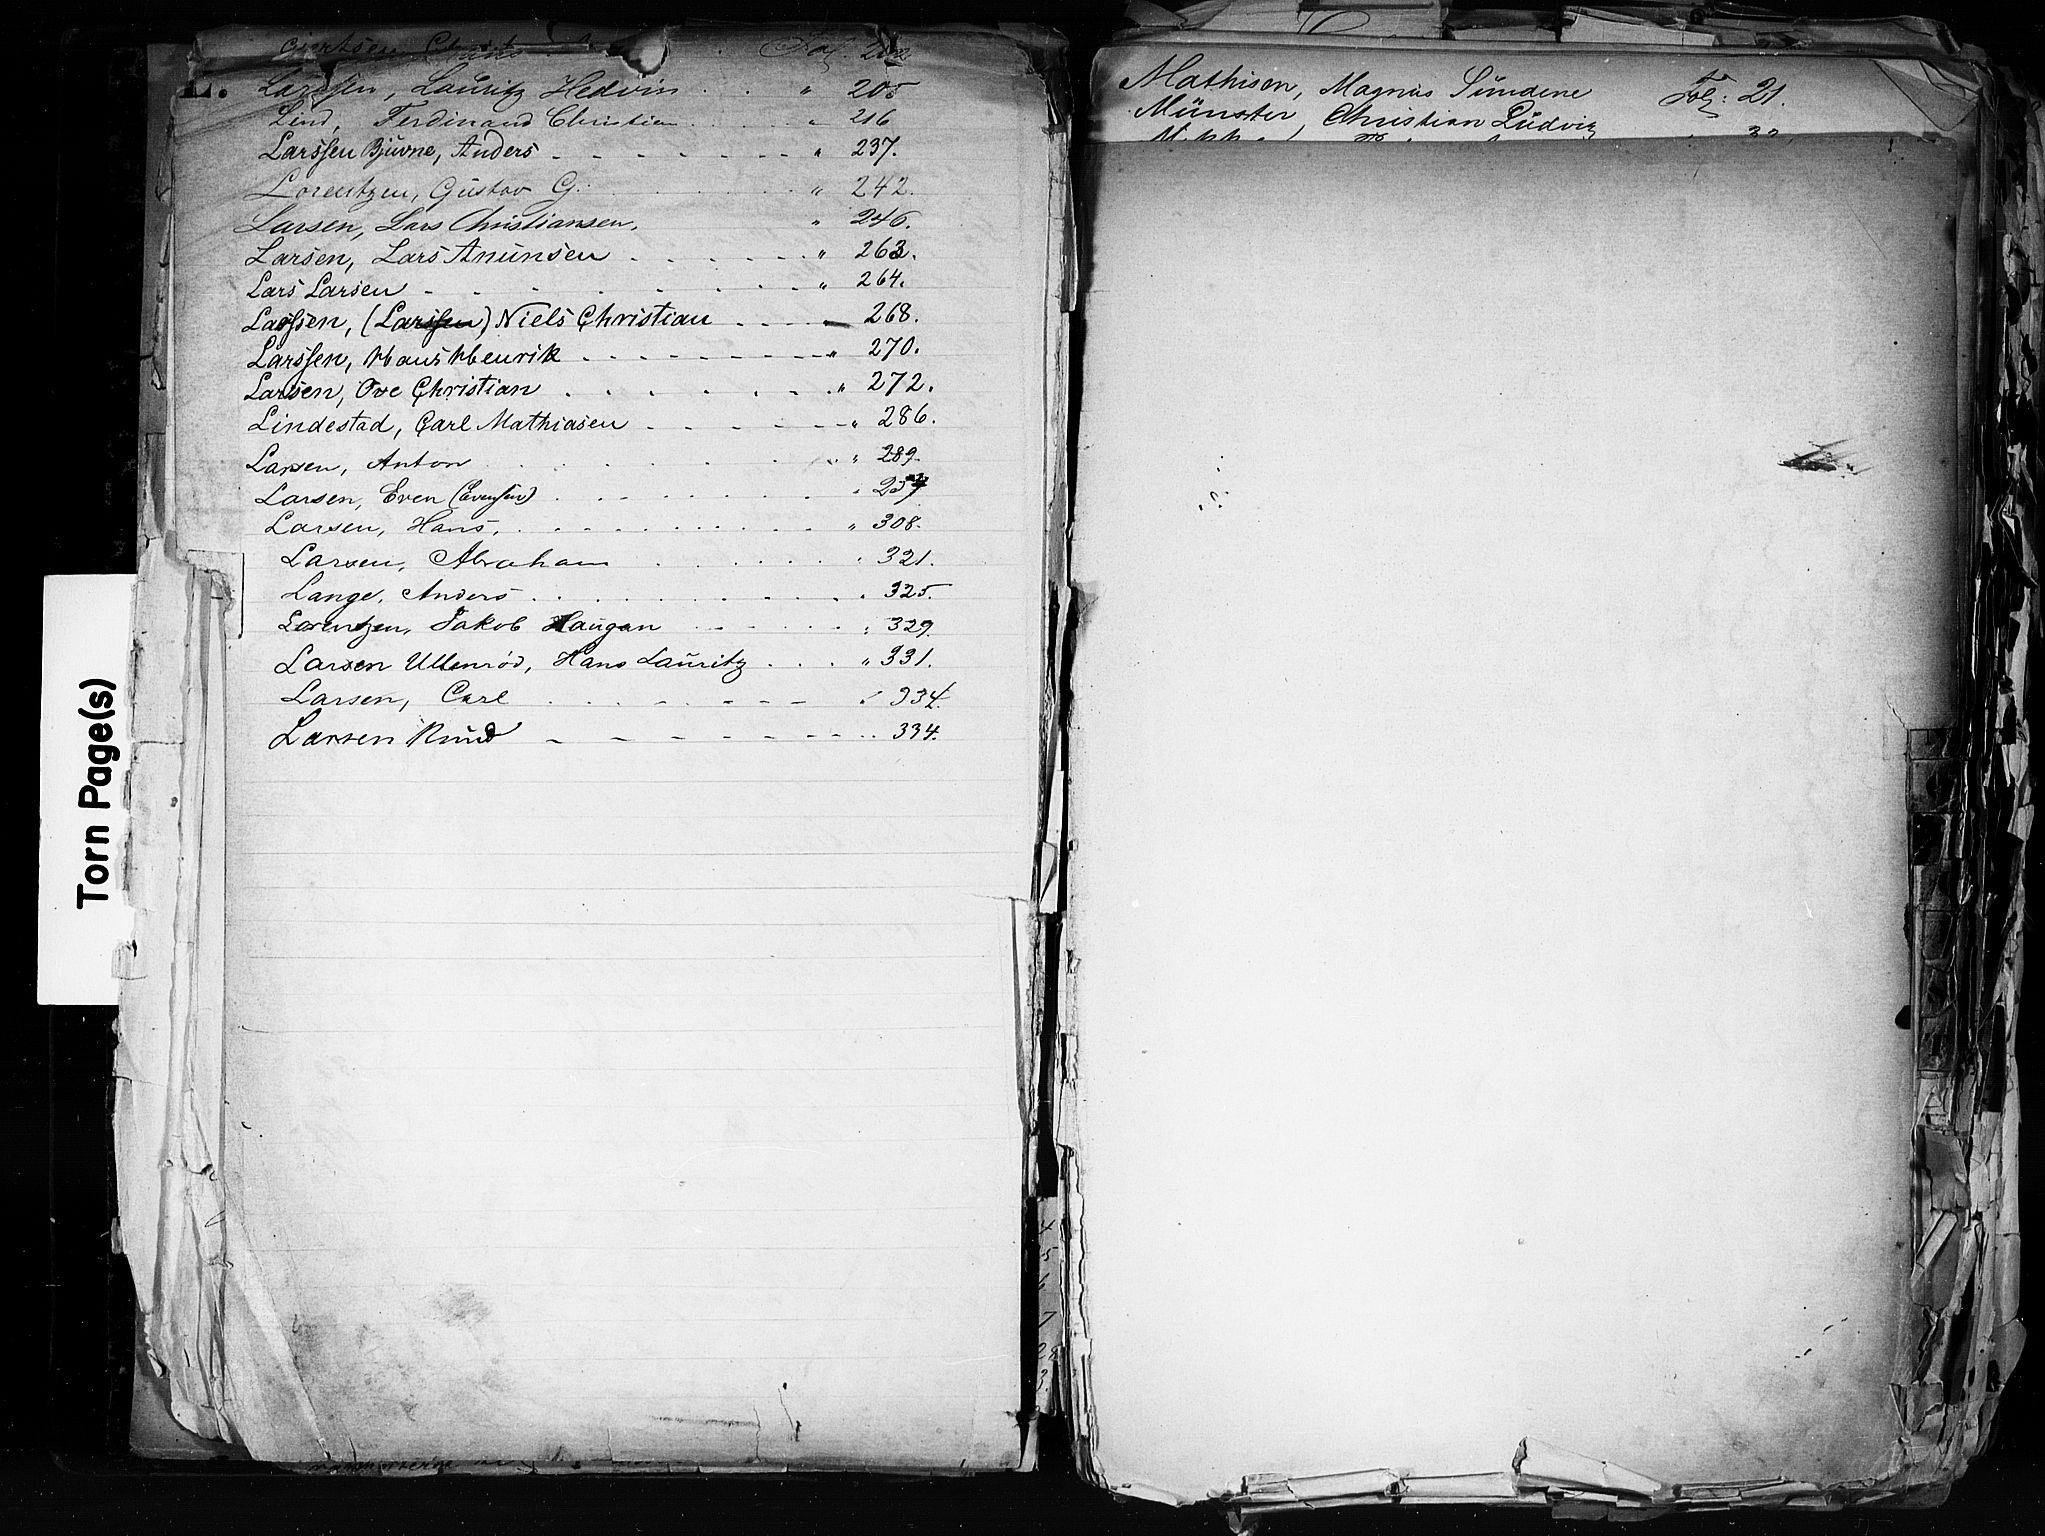 Fol. 202
L. Larssen, Lauritz Hedvin . . " 205
Lind, Ferdinand Christian . . . . " 216
Larssen Bjuvne, Anders - - - - - - - " 237.
Lorentzen, Gustav G. " 242.
Larsen, Lars Christiansen, " 246.
Larsen, Lars Anunsen - - - - - - " 263.
Lars Larsen - - - - - - - - " 264.
Lassen, (Larssen) Niels Christian - - - - 268.
Larssen, Hans Henrik - - - - - - - - " 270.
Larsen, Ove Christian . - - - - - " 272.
Lindestad, Carl Mathiasen - - - - - " 286.
Larsen, Anton . . . . . . . " 289.
Larsen, Even (Evensen) . . . . . . . "
Larsen, Hans, . . . . . . . . " 308.
Larsen, Abraham . . . . . . 321.
Lange, Anders . . . . . . . . . " 325.
Lorentzen, Jakob Haugan - - - - - " 329.
Larsen Ullenrød, Hans Lauritz . . . " 331.
Larsen, Carl . . . . - - - " 334.
Larsen Knud - - - - - - - - - .. 334.
Mathisen, Magnus Sundene Fol: 21.
Münster, Christian Ludvig
Torn Page(s)